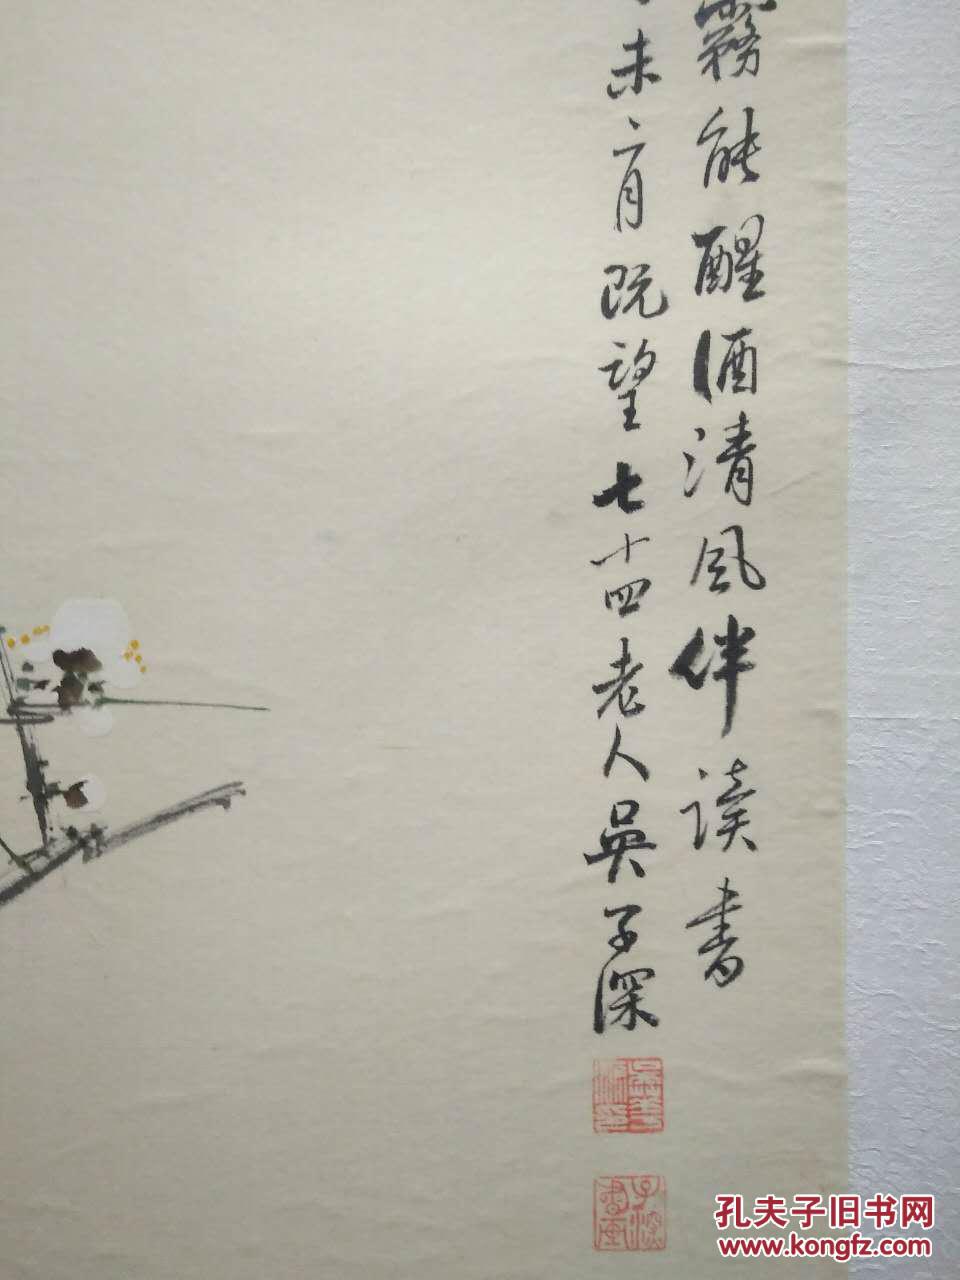 霧能醒酒清風伴讀書
未六月既望七十四老人吳子深
吳華源印
子深書画
孔夫子旧书网
www.kongfz.com